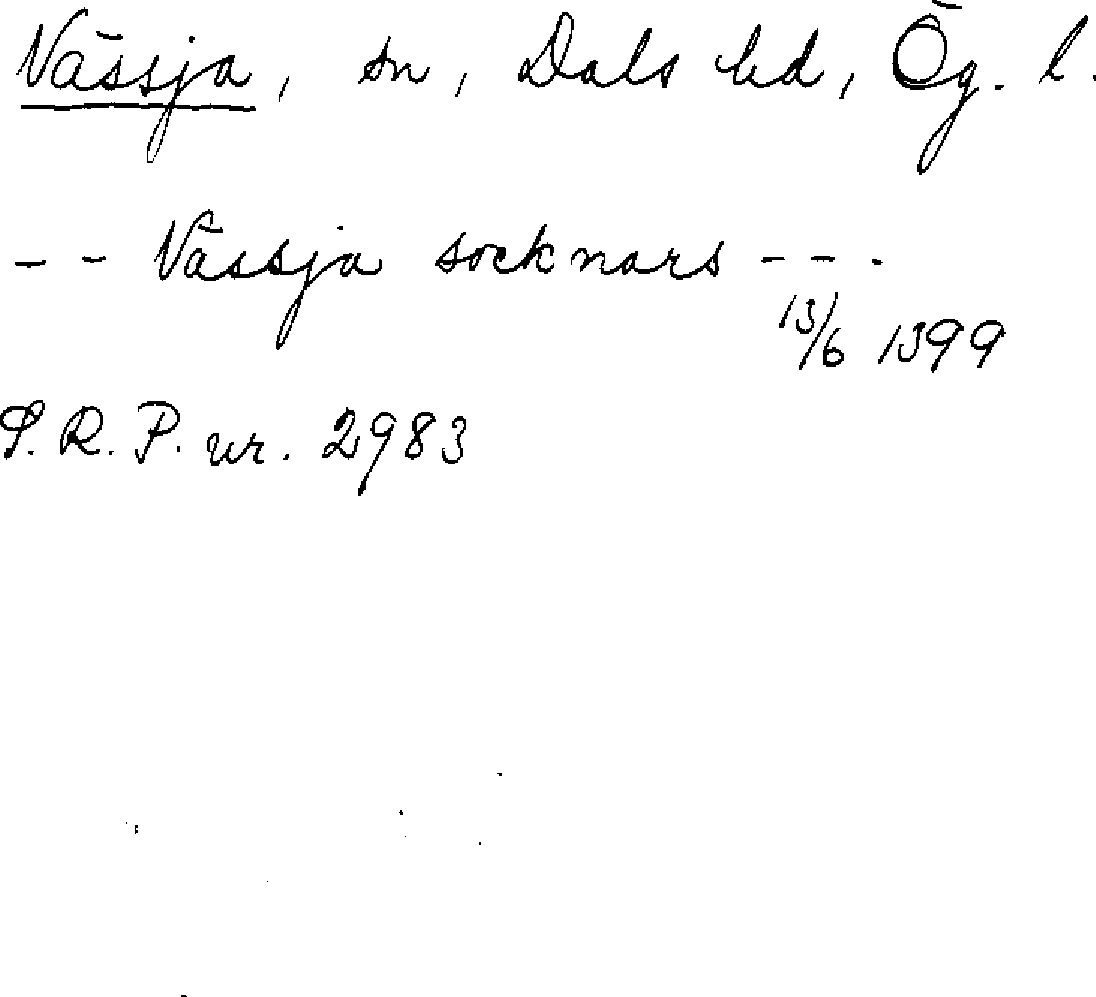 Vässja, sn, Dals hd, Ög. l.
-- Vässja socknars ---
13/6 1399
S.R.P. nr. 2983